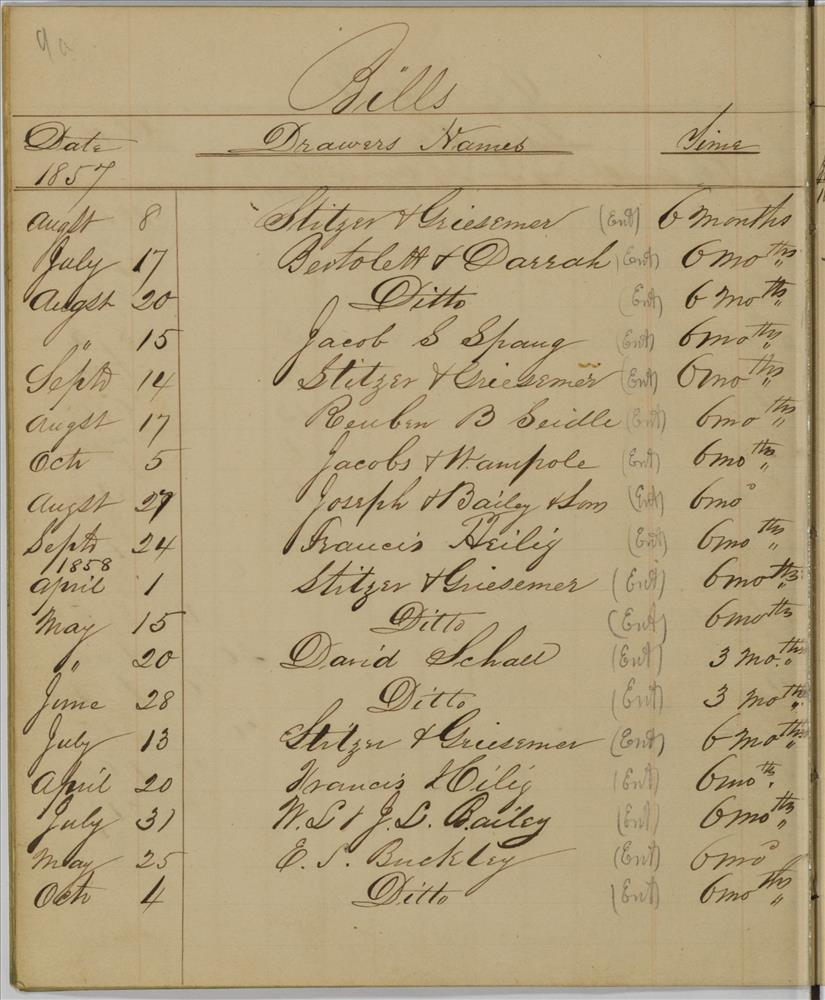 9a
Bills
Date Drawers Names Time
1857
Augst 8 Stitzer & Griesemer (Ent) 6 months
July 17 Bertolett & Darrah (Ent) 6 moths
Augst 20 Ditto (Ent) 6 moths
" 15 Jacob S Spaug (Ent) 6 moths
Septr 14 Stitzer & Griesemer (Ent) 6 moths
Augst 17 Reuben B Seidle (Ent) 6 moths
Octr 5 Jacobs & Wampole (Ent) 6 moths
Augst 27 Joseph & Bailey & Son (Ent) 6 mos
Septr 24 Francis Heilig (Ent) 6 moths
1858
April 1 Stitzer & Griesemer (Ent) 6 moths
May 15 Ditto (Ent) 6 moths
" 20 David Schall (Ent) 3 moths
June 28 Ditto (Ent) 3 moths
July 13 Stitzer & Griesemer (Ent) 6 moths
April 20 Francis Hilig (Ent) 6 moth
July 31 W. L & J. L. Bailey (Ent) 6 moths
May 25 E. S. Buckley (Ent) 6 mos
Octr 4 Ditto (Ent) 6 moths